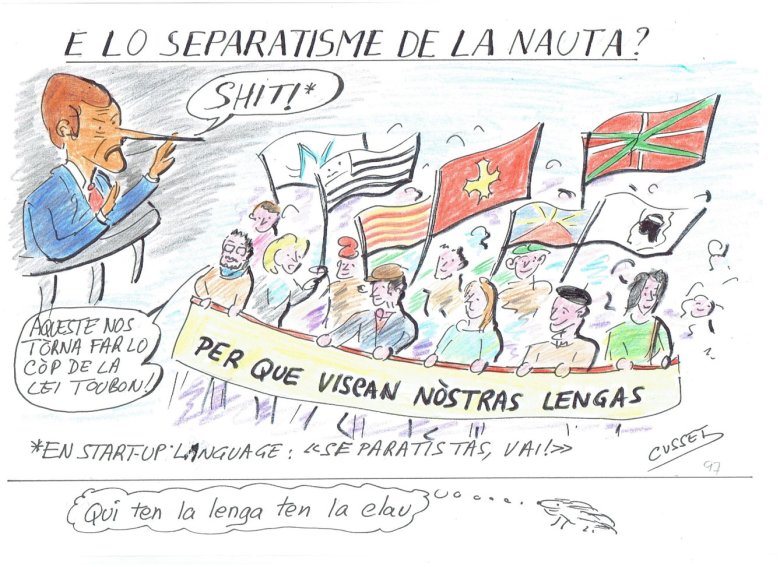 E LO SEPARATISME DE LA NAUTA?
SHIT!*
AQUESTE NOS
TORNA FAR LO
CÒP DE LA
LEI TOUBON!
PER QUE VISCAN NÒSTRAS LENGAS
*EN START-UP LANGUAGE: «SEPARATISTAS, VAI!»
CUSSET
97
Qui ten la lenga ten la clau